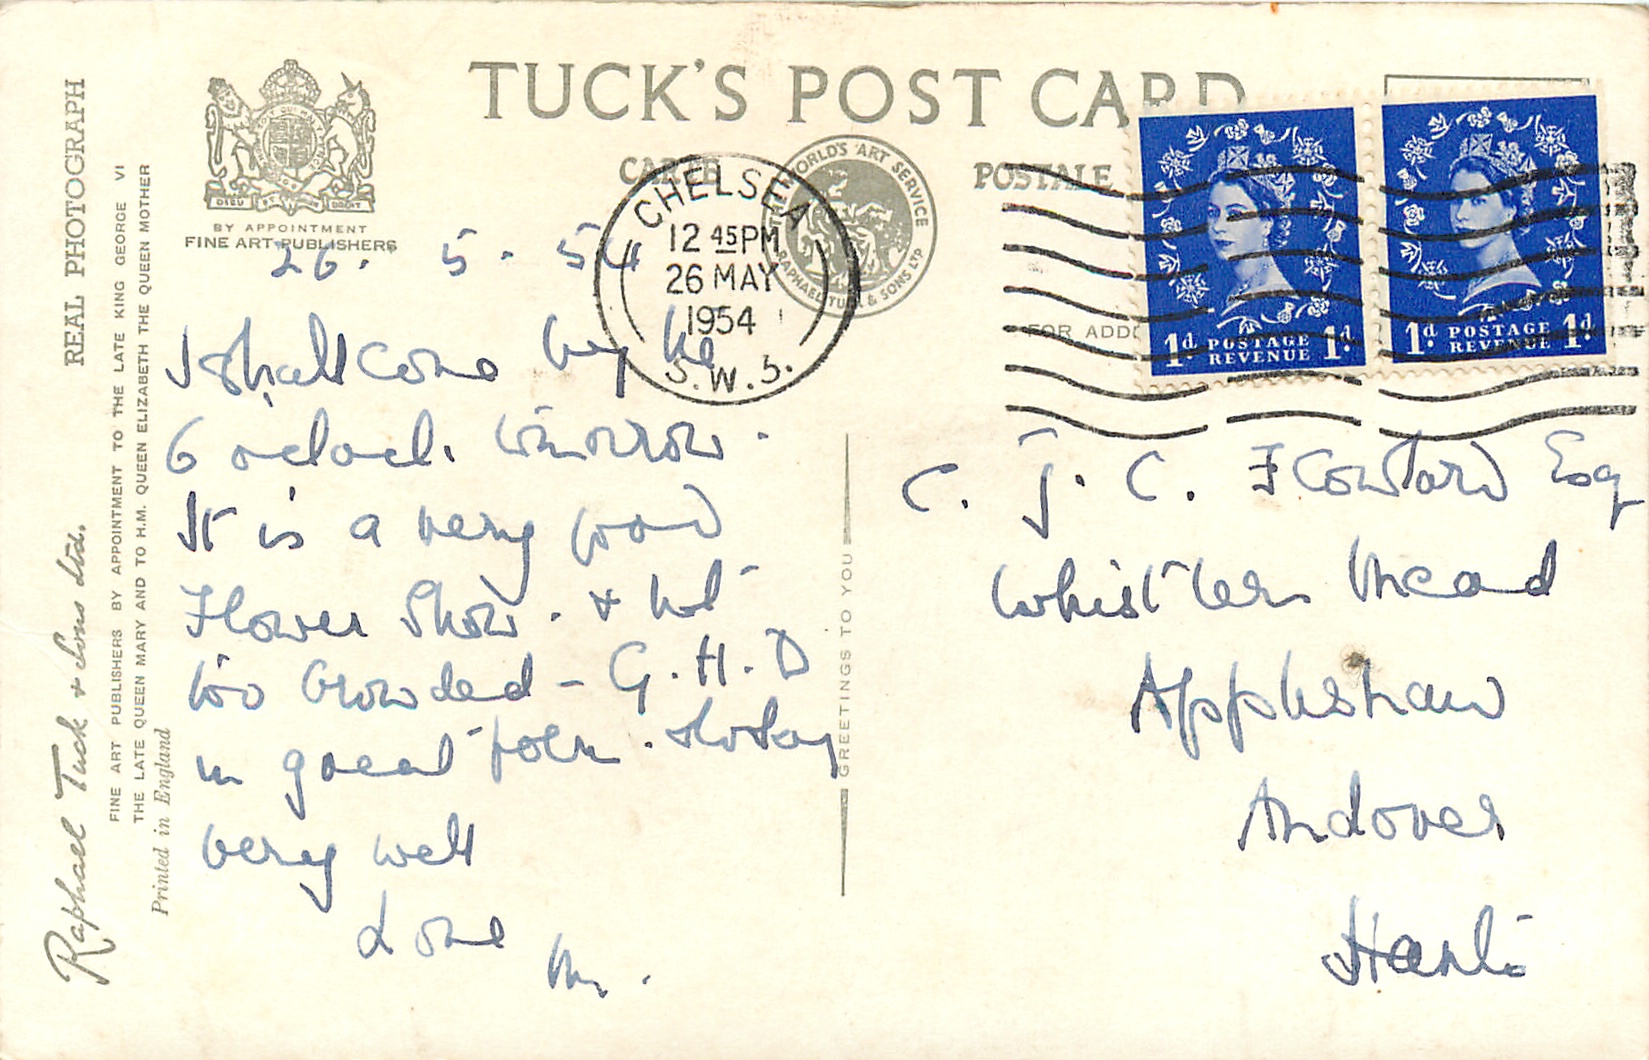 TUCK'S POST CARD
CARTE POSTALE
BY APPOINTMENT
FINE ART PUBLISHERS
THE WORLD'S ART SERVICE
RAPHAEL TUCK & SONS LTD
CHELSEA
12 45 PM
26 MAY
1954
S.W.3.
1d POSTAGE REVENUE 1d
1d POSTAGE REVENUE 1d
FOR ADD
REAL PHOTOGRAPH
Raphael Tuck & Sons Ltd.
FINE ART PUBLISHERS BY APPOINTMENT TO THE LATE KING GEORGE VI
THE LATE QUEEN MARY AND TO H.M. QUEEN ELIZABETH THE QUEEN MOTHER
Printed in England
GREETINGS TO YOU
26. 5. 54
I shall come by the
6 o'clock tomorrow.
It is a very good
Flower Show. & not
too crowded - G.H.D
in great form.
very well
Love
M.
C. J. C.  Esq
Whistlers Mead
Appleshaw
Andover
Hants